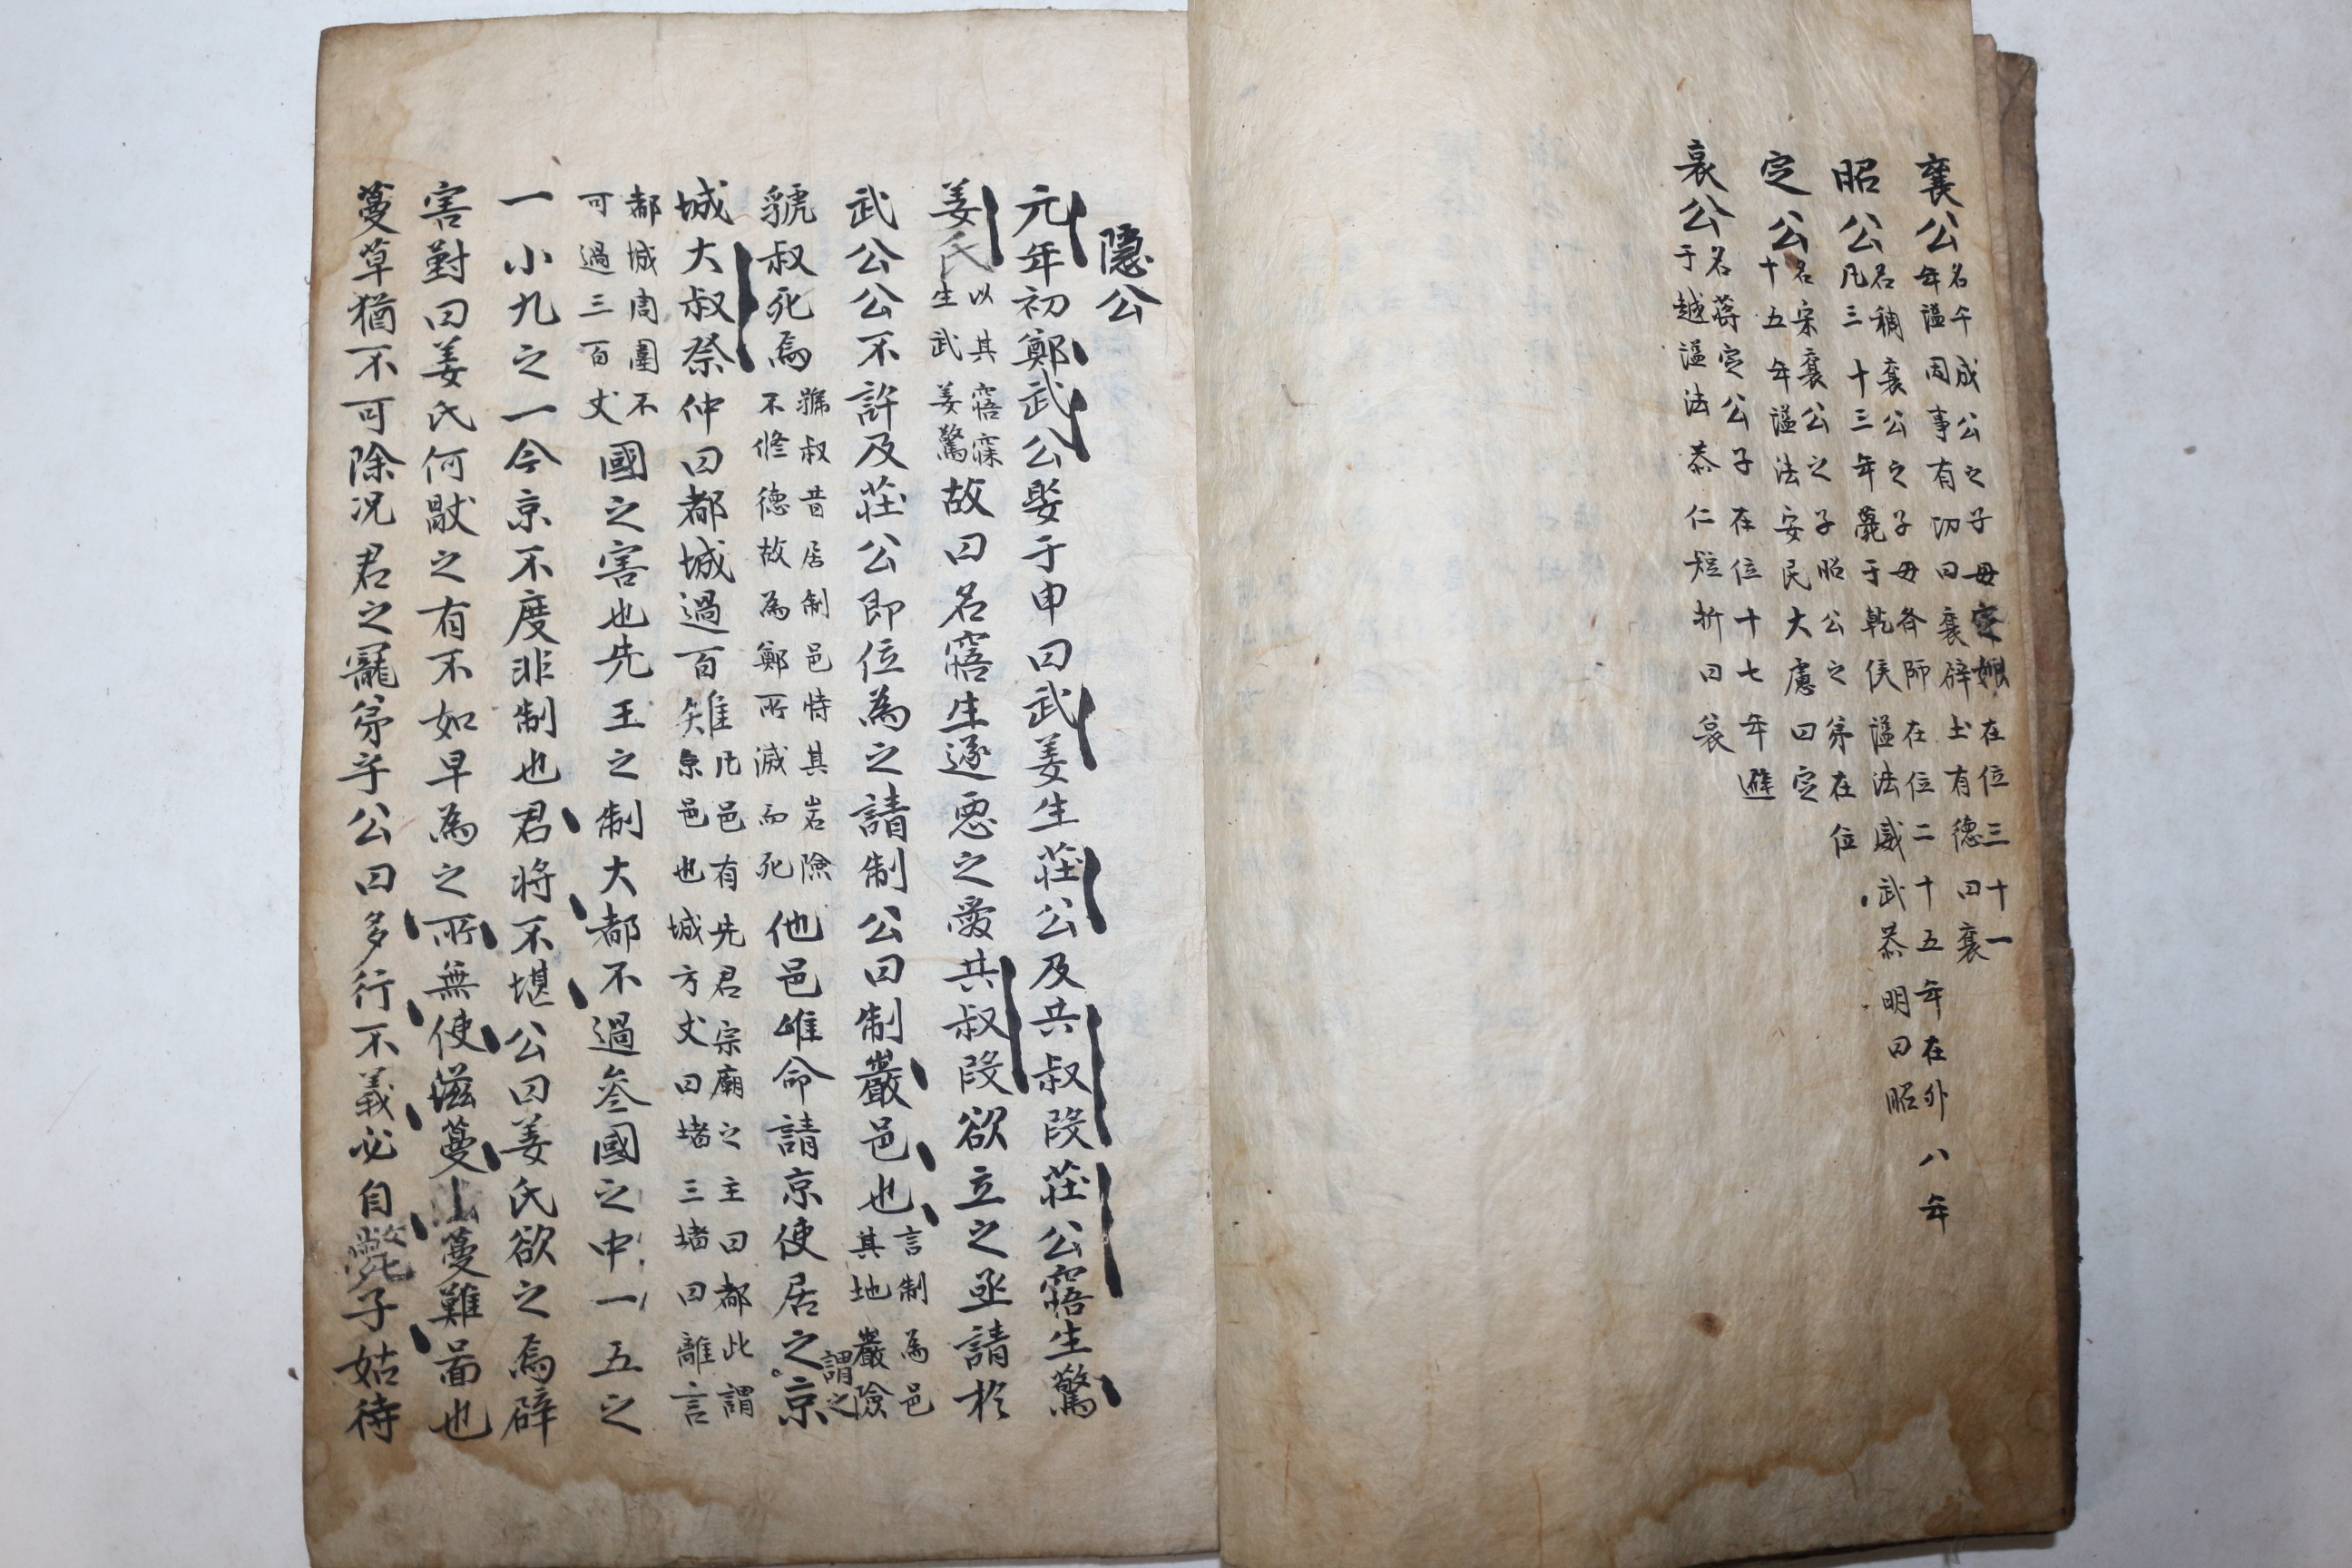 襄公名午成公之子母定姒在位三十一
年謚周事有功曰襄辟土有德曰襄
昭公名稠襄公之子母各師在位二十五年在外八年
凡三十三年薨于乾侯謚法威武恭明曰昭
定公名宋襄公之子昭公之弟在位
十五年謚法安民大慮曰定
哀公名蔣定公子在位十七年避
于越謚法恭仁短折曰哀
隱公
元年初鄭武公娶于申曰武姜生莊公及共叔段莊公寤生驚
姜氏以其寤寐生武姜驚故曰名寤生遂惡之愛共叔段欲立之亟請於
武公公不許及莊公即位為之請制公曰制巖邑也言制為邑其地巖險
虢叔死焉虢叔昔居制邑恃其岩險不修德故為鄭所滅而死他邑唯命請京使居之京謂之
城大叔祭仲曰都城過百雉凡邑有先君宗廟之主曰都此謂京邑也城方丈曰堵三堵曰雉言
都城周圍不可過三百丈國之害也先王之制大都不過參國之中一五之
一小九之一今京不度非制也君將不堪公曰姜氏欲之焉辟
害對曰姜氏何厭之有不如早為之所無使滋蔓蔓難啚也
蔓草猶不可除况君之寵弟乎公曰多行不義必自斃子姑待